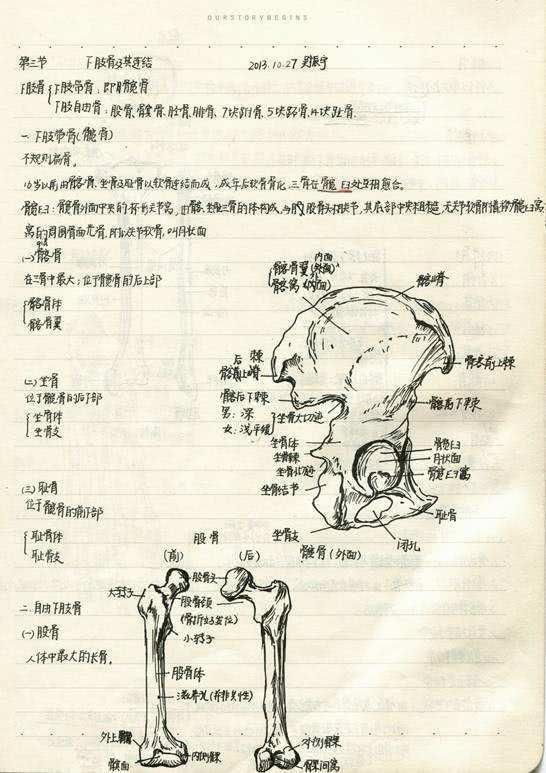 OURSTORYBEGINS
第三节 下肢骨及其连结 2013.10.27
下肢骨 下肢带骨：即髋骨
下肢自由骨：股骨，髌骨，胫骨，腓骨，7块跗骨，5块跖骨，14块趾骨.
一.下肢带骨(髋骨)
不规则扁骨.
16岁以前由髂骨，坐骨及耻骨以软骨连结而成，成年后软骨骨化，三骨在髋臼处互相愈合。
髋臼：髋骨外面中央的 关节窝，由髂、坐、耻三骨的体构成，与股骨头相关节，其底部中央粗糙，无关节软骨附着称髋臼窝，
窝的周围骨面光滑，附以关节软骨，叫月状面
(一)髂骨
在三骨中最大；位于髋骨的后上部
髂骨体
髂骨翼
内面
髂骨翼(外面)
髂窝(内面)
髂嵴
后
髂前上棘
髂后下棘
男：深
女：浅平缓
坐骨大切迹
髂前下棘
(二)坐骨
位于髋骨的后下部
坐骨体
坐骨支
坐骨体
坐骨棘
坐骨小切迹
坐骨结节
坐骨支
髋臼
月状面
髋臼窝
耻骨
闭孔
髋骨(外面)
(三)耻骨
位于髋骨的前下部
耻骨体
耻骨支
股骨
(前) (后)
股骨头
大转子
股骨颈
(骨折好发位)
小转子
二.自由下肢骨
(一)股骨
人体中最大的长骨。
股骨体
滋养孔(并非共性)
外上髁
髌面
内侧髁
外侧髁
髁间窝